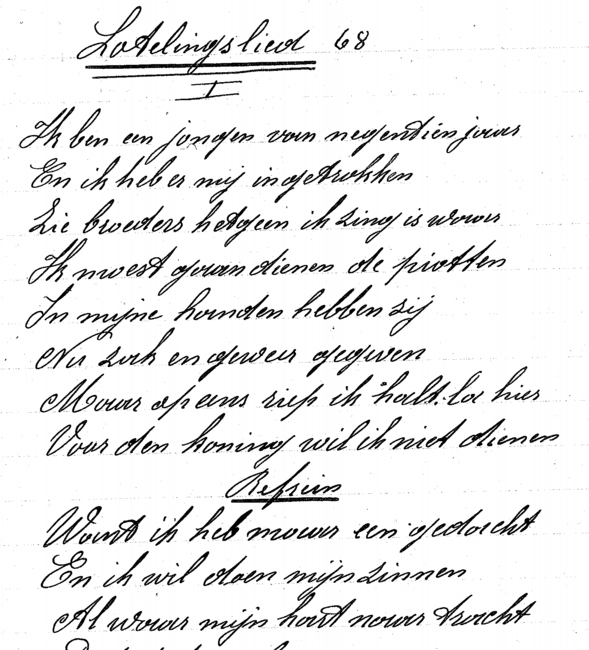 Lotelingslied 68
I
Ik ben een jongen van negentien jaar
En ik heb er mij ingetrokken
Zie broeders hetgeen ik zing is waar
Ik moest gaan dienen de piotten
In mijne handen hebben zij
Nu zack en geweer gegeven
Maar opeens riep ik halt. la hier
Voor den koning wil ik niet dienen
Refrein
Want ik heb maar een gedacht
En ik wil doen mijn zinnen
Al waar mijn hart naar tracht